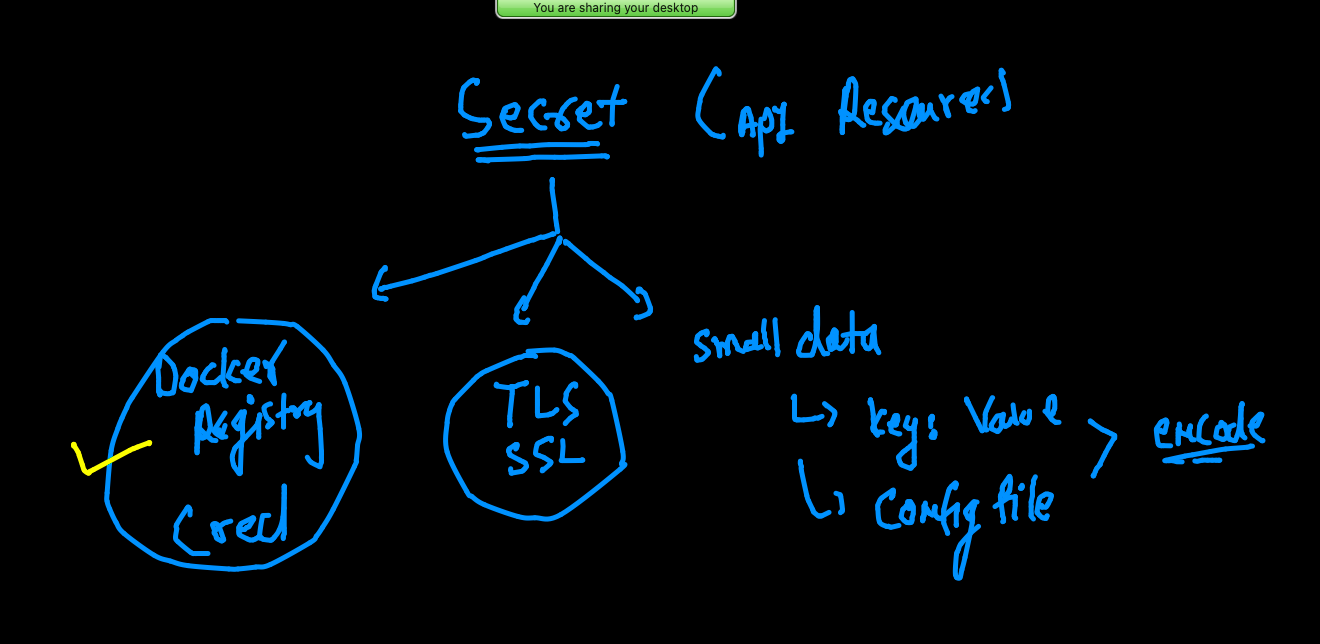 You are sharing your desktop
Secret (Api Resources)
Docker
Registry
Cred
TLS
SSL
small data
key: Value
Config file
encode